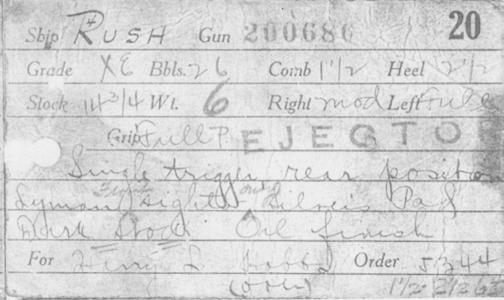 Ship RUSH Gun 200686 20
Grade XE Bbls. 26 Comb 1 1/2 Heel 2 1/2
Stock 14 3/4 Wt. 6 Right mod Left Full
Grip Full P. EJECTO
Single trigger rear position
Lyman Sights Pad
Dark Stock Oil finish
For L. Order 5344
(over) 1 1/2